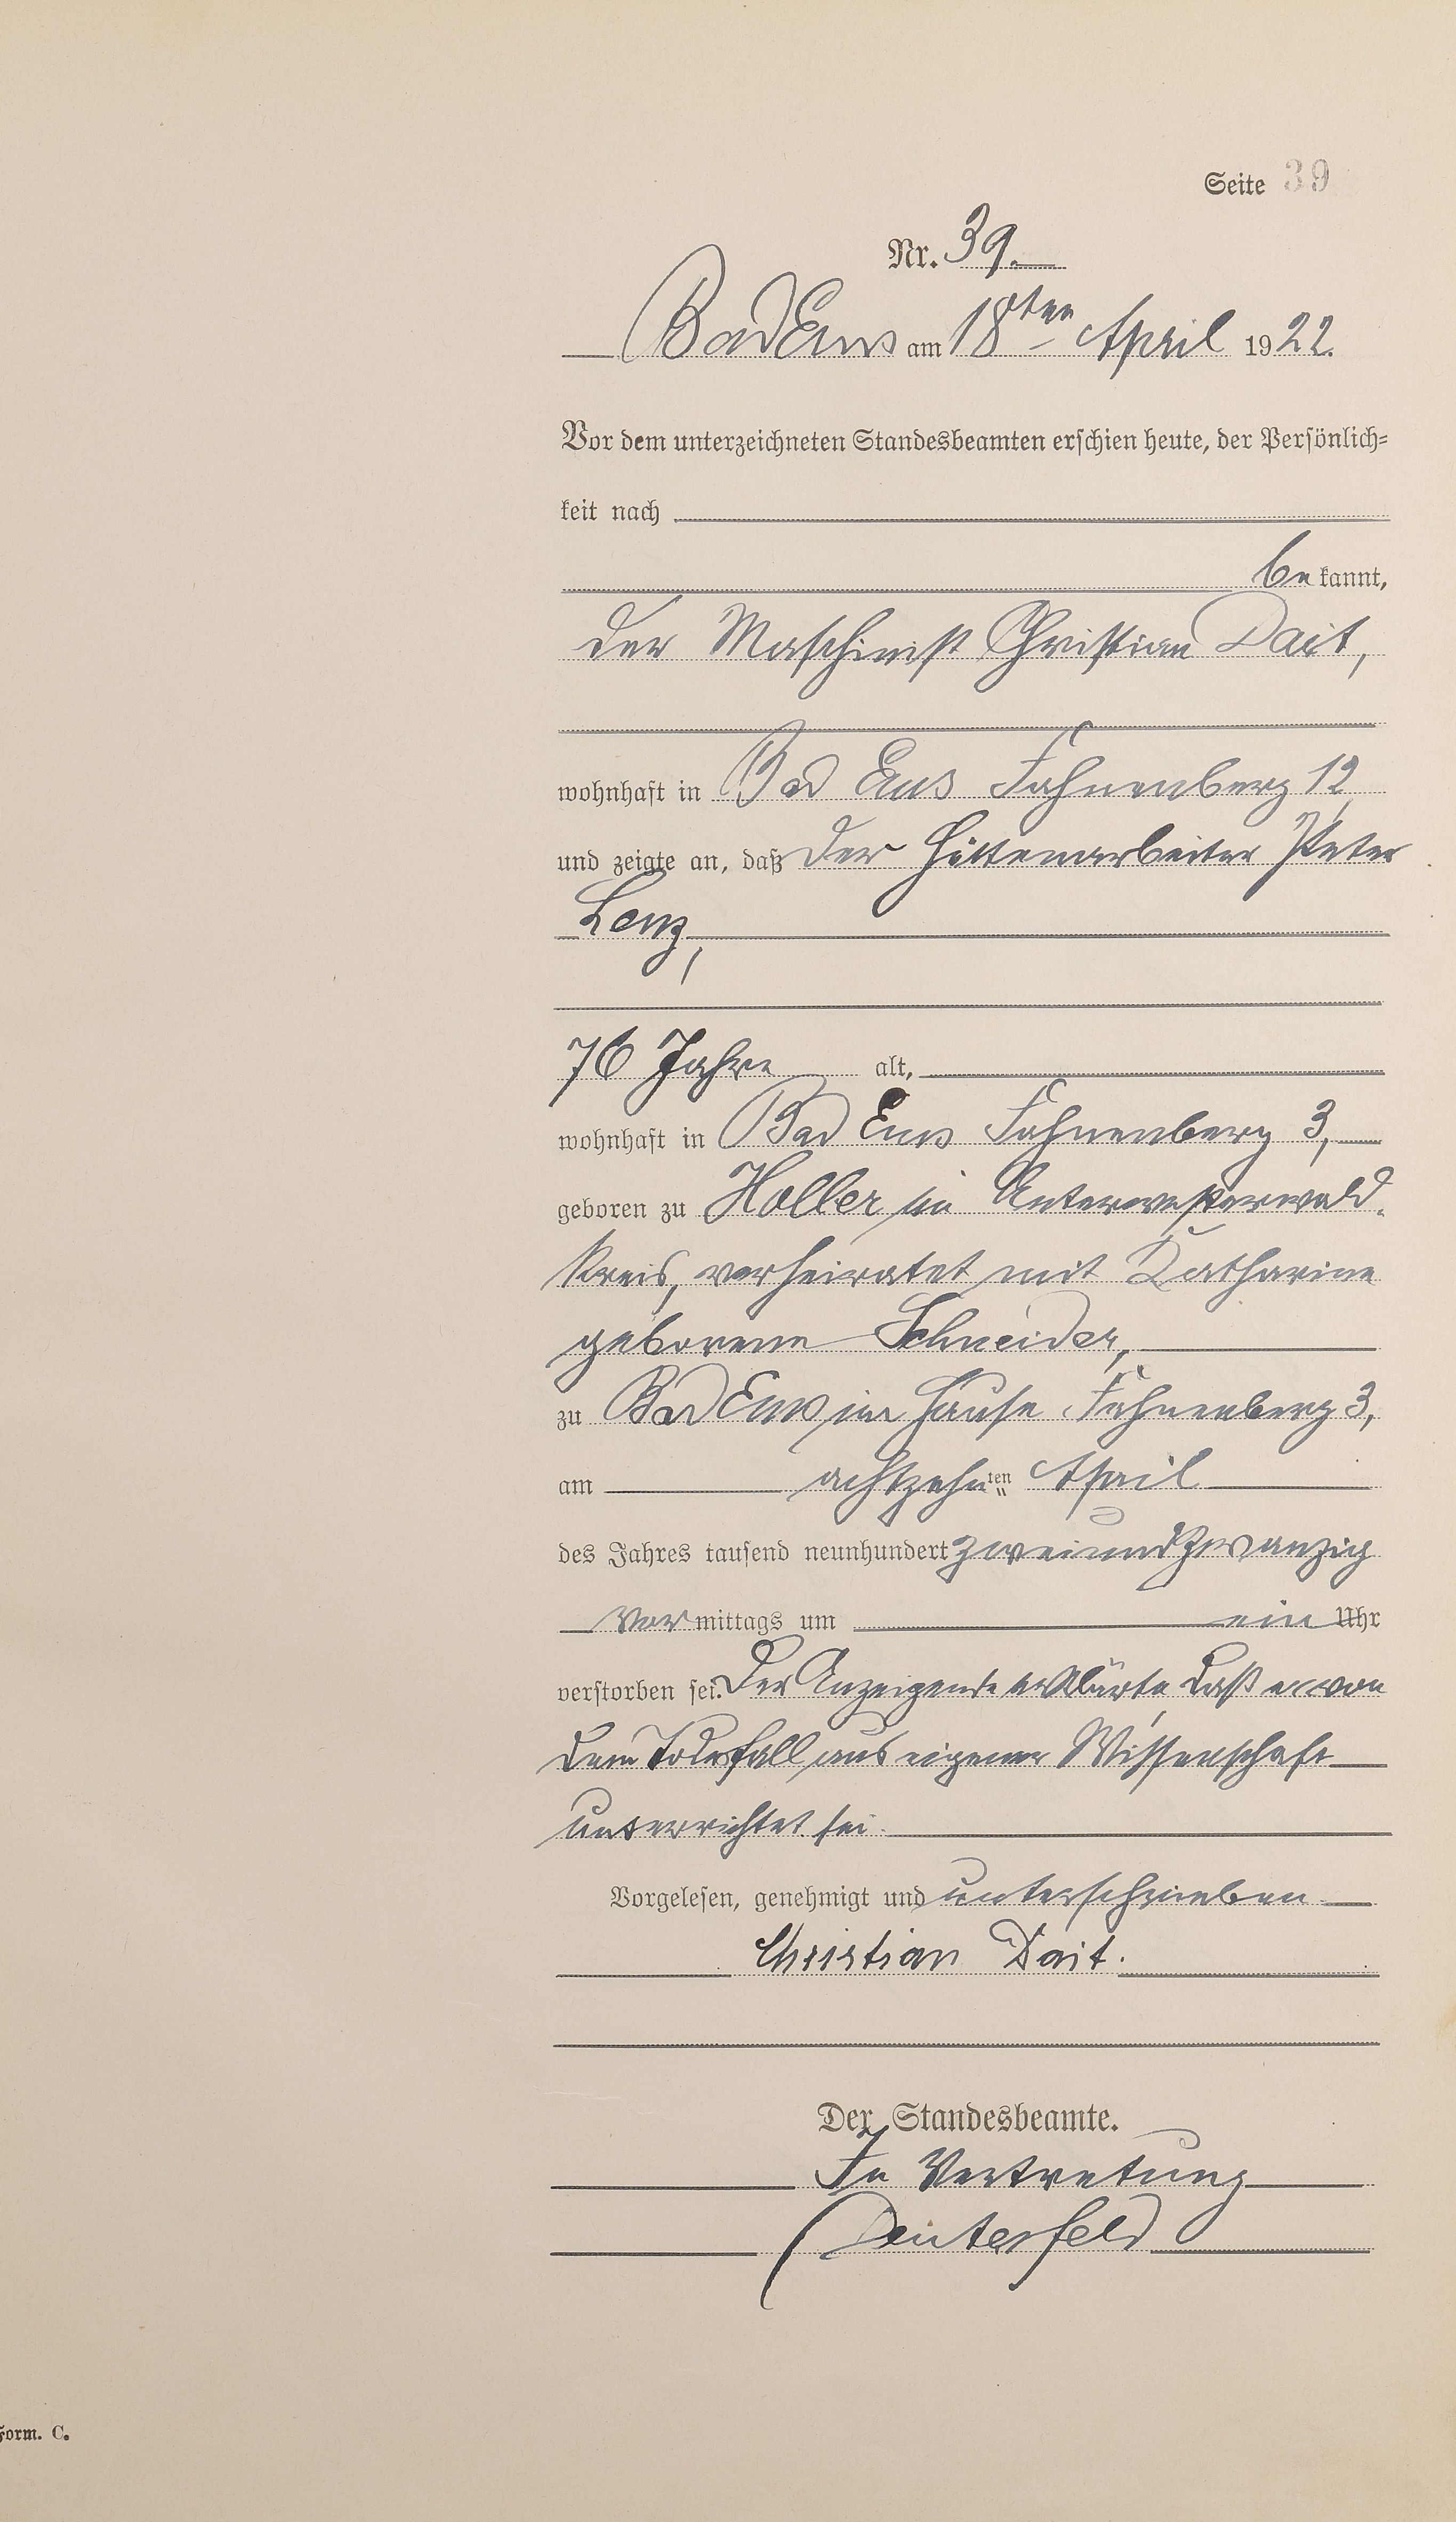 Seite 39
Nr. 39.
Bad Ems am 18ten April 1922.
Vor dem unterzeichneten Standesbeamten erschien heute, der Persönlich=
keit nach
bekannt,
der Maschinist Christian Dait,
wohnhaft in Bad Ems Fahnenberg 12
und zeigte an, daß der Hüttenarbeiter Peter
Lenz,
76 Jahre alt,
wohnhaft in Bad Ems Fahnenberg 3,
geboren zu Holler im Unterwesterwald-
kreis, verheiratet mit Katharine
geborene Schneider,
zu Bad Ems im Hause Fahnenberg 3,
am achtzehnten April
des Jahres tausend neunhundert zweiundzwanzig
vormittags um ein Uhr
verstorben sei. Der Anzeigende erklärte, daß er von
dem Todesfall aus eigener Wissenschaft
unterrichtet sei.
Vorgelesen, genehmigt und unterschrieben
Christian Dait.
Der Standesbeamte.
In Vertretung
Form. C.